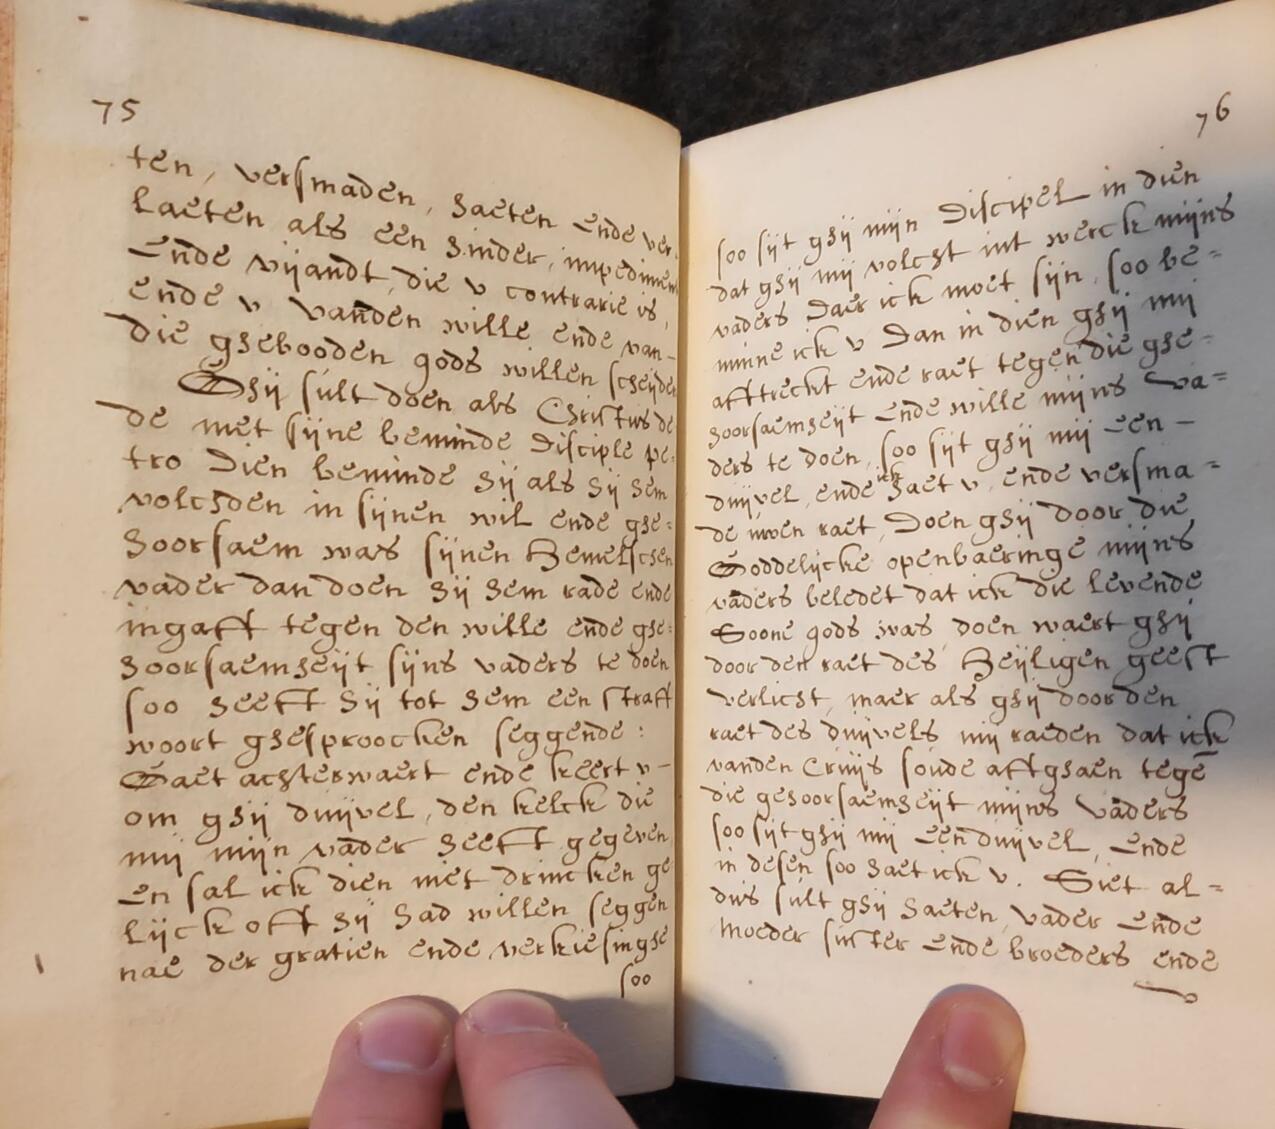 75
ten, versmaden, haeten ende ver-
laeten als een hinder, impedimen
ende vijandt, die v contrarie is,
ende v vanden wille ende van-
die ghebooden gods willen scheijden
Ghij sult doen als Christus de-
de met sijne beminde Disciple pe-
tro Dien beminde hij als hij hem
volchden in sijnen wil ende ghe-
hoorsaem was sijnen Hemelschen
vader dan doen hij hem rade ende
ingaff tegen den wille ende ghe-
hoorsaemheijt sijns vaders te doen
soo heeft hij tot hem een straff
woort ghesproocken seggende:
Gaet achterwaert ende keert v-
om ghij duijvel, den kelck die
mij mijn vader heeft gegeven
en sal ick dien niet drincken ge
lijck oft hij had willen seggen
nae der gratien ende verkiesinghe
soo
76
soo sijt ghij mijn Discipel in dien
dat ghij mij volcht int werck mijns
vaders Daer ick moet sijn, soo be-
minne ick v Dan in dien ghij mij
afftreckt ende raet tegen die ghe-
hoorsaemheijt ende wille mijns va-
ders te doen, soo sijt ghij mij een -
duijvel, ende ick haet v, ende versma-
de uwen raet, Doen ghij door die
Goddelijcke openbaeringe mijns
vaders beledet dat ick die levende
Soone gods was, doen waert ghij
door den raet des Heijligen geest
verlicht, maer als ghij door den
raet des duijvels mij raeden dat ick
vanden Cruijs soude affghaen tegē
die gehoorsaemheijt mijns vaders
soo sijt ghij mij een duijvel, ende
in desen soo haet ick v. Siet al-
dus sult ghij haeten, vader ende
moeder suster ende broeders ende